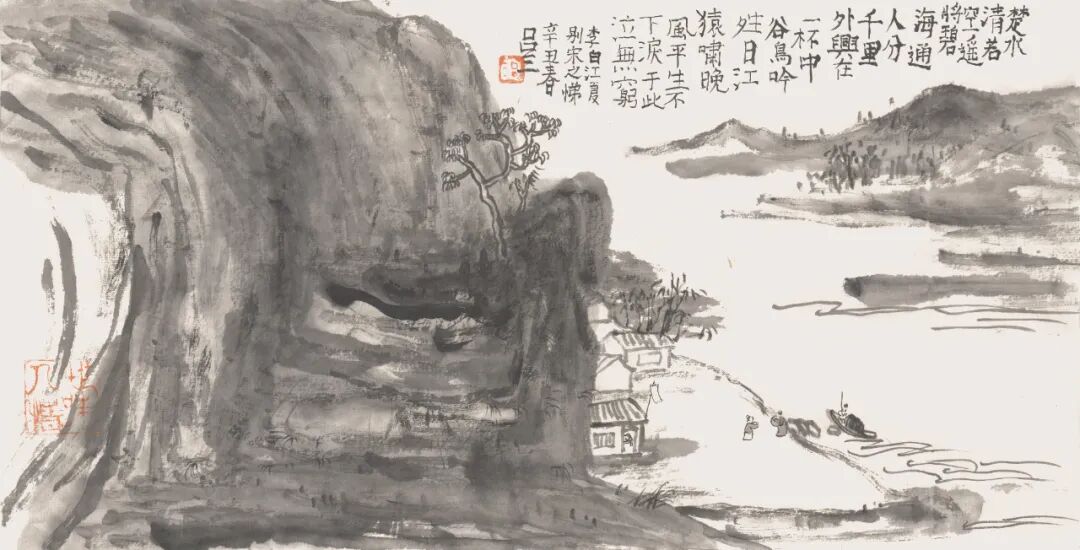 楚水
清若
空遥
將碧
海通
人分
千里
外興在
一杯中
谷鳥吟
晴日江
猿嘯晚
風平生不
下淚于此
泣無窮
李白江夏
别宋之悌
辛丑春
吕三